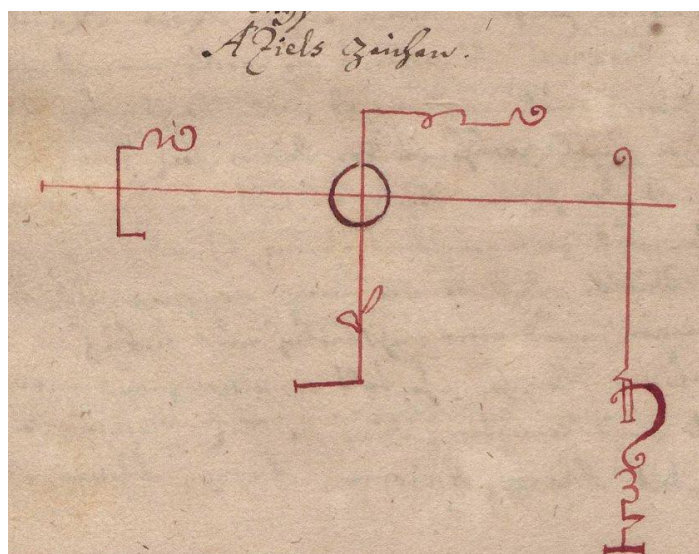 AZiels zeichen.